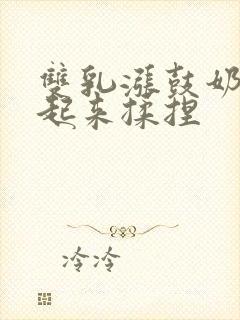 雙乳漲鼓奶
起来揉捏
冷冷